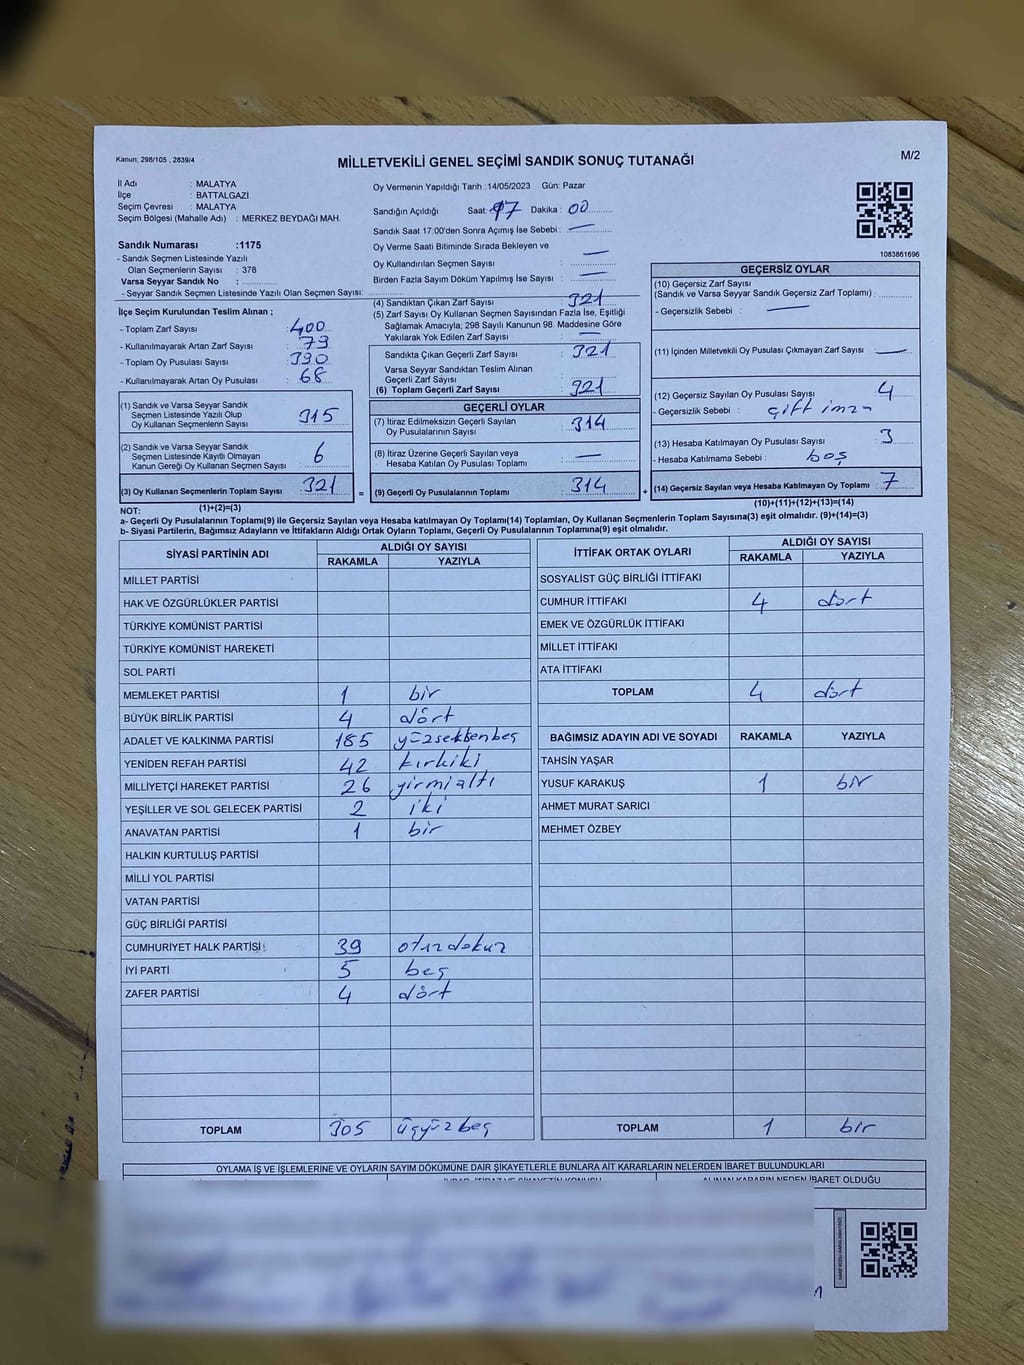 Kanun; 298/105 , 2839/4
MİLLETVEKİLİ GENEL SEÇİMİ SANDIK SONUÇ TUTANAĞI
M/2
İl Adı : MALATYA
İlçe : BATTALGAZİ
Seçim Çevresi : MALATYA
Seçim Bölgesi (Mahalle Adı) : MERKEZ BEYDAĞI MAH.
Oy Vermenin Yapıldığı Tarih :14/05/2023 Gün: Pazar
Sandığın Açıldığı Saat: 17 Dakika : 00
Sandık Saat 17:00'den Sonra Açımış İse Sebebi : —
Oy Verme Saati Bitiminde Sırada Bekleyen ve
Oy Kullandırılan Seçmen Sayısı : —
Birden Fazla Sayım Döküm Yapılmış İse Sayısı : —
Sandık Numarası :1175
- Sandık Seçmen Listesinde Yazılı
Olan Seçmenlerin Sayısı : 378
Varsa Seyyar Sandık No :
- Seyyar Sandık Seçmen Listesinde Yazılı Olan Seçmen Sayısı:
1083861696
İlçe Seçim Kurulundan Teslim Alınan ;
- Toplam Zarf Sayısı : 400
- Kullanılmayarak Artan Zarf Sayısı : 79
- Toplam Oy Pusulası Sayısı : 390
- Kullanılmayarak Artan Oy Pusulası : 68
(1) Sandık ve Varsa Seyyar Sandık
Seçmen Listesinde Yazılı Olup
Oy Kullanan Seçmenlerin Sayısı : 315
(2) Sandık ve Varsa Seyyar Sandık
Seçmen Listesinde Kayıtlı Olmayan
Kanun Gereği Oy Kullanan Seçmen Sayısı : 6
(3) Oy Kullanan Seçmenlerin Toplam Sayısı : 321
(4) Sandıktan Çıkan Zarf Sayısı : 321
(5) Zarf Sayısı Oy Kullanan Seçmen Sayısından Fazla İse, Eşitliği
Sağlamak Amacıyla; 298 Sayılı Kanunun 98. Maddesine Göre
Yakılarak Yok Edilen Zarf Sayısı : —
Sandıkta Çıkan Geçerli Zarf Sayısı : 321
Varsa Seyyar Sandıktan Teslim Alınan
Geçerli Zarf Sayısı :
(6) Toplam Geçerli Zarf Sayısı : 321
GEÇERLİ OYLAR
(7) İtiraz Edilmeksizin Geçerli Sayılan
Oy Pusulalarının Sayısı : 314
(8) İtiraz Üzerine Geçerli Sayılan veya
Hesaba Katılan Oy Pusulası Toplamı : —
= (9) Geçerli Oy Pusulalarının Toplamı : 314
GEÇERSİZ OYLAR
(10) Geçersiz Zarf Sayısı
(Sandık ve Varsa Seyyar Sandık Geçersiz Zarf Toplamı) :
- Geçersizlik Sebebi : —
(11) İçinden Milletvekili Oy Pusulası Çıkmayan Zarf Sayısı : —
(12) Geçersiz Sayılan Oy Pusulası Sayısı : 4
- Geçersizlik Sebebi : çift imza
(13) Hesaba Katılmayan Oy Pusulası Sayısı : 3
- Hesaba Katılmama Sebebi : boş
+ (14) Geçersiz Sayılan veya Hesaba Katılmayan Oy Toplamı : 7
NOT: (1)+(2)=(3) (10)+(11)+(12)+(13)=(14)
a- Geçerli Oy Pusulalarının Toplamı(9) ile Geçersiz Sayılan veya Hesaba katılmayan Oy Toplamı(14) Toplamları, Oy Kullanan Seçmenlerin Toplam Sayısına(3) eşit olmalıdır. (9)+(14)=(3)
b- Siyasi Partilerin, Bağımsız Adayların ve İttifakların Aldığı Ortak Oyların Toplamı, Geçerli Oy Pusulalarının Toplamına(9) eşit olmalıdır.
SİYASİ PARTİNİN ADI ALDIĞI OY SAYISI
RAKAMLA YAZIYLA
MİLLET PARTİSİ
HAK VE ÖZGÜRLÜKLER PARTİSİ
TÜRKİYE KOMÜNİST PARTİSİ
TÜRKİYE KOMÜNİST HAREKETİ
SOL PARTİ
MEMLEKET PARTİSİ 1 bir
BÜYÜK BİRLİK PARTİSİ 4 dört
ADALET VE KALKINMA PARTİSİ 185 yüzseksenbeş
YENİDEN REFAH PARTİSİ 42 kırkiki
MİLLİYETÇİ HAREKET PARTİSİ 26 yirmialtı
YEŞİLLER VE SOL GELECEK PARTİSİ 2 iki
ANAVATAN PARTİSİ 1 bir
HALKIN KURTULUŞ PARTİSİ
MİLLİ YOL PARTİSİ
VATAN PARTİSİ
GÜÇ BİRLİĞİ PARTİSİ
CUMHURİYET HALK PARTİSİ 39 otuzdokuz
İYİ PARTİ 5 beş
ZAFER PARTİSİ 4 dört
TOPLAM 305 üçyüzbeş
İTTİFAK ORTAK OYLARI ALDIĞI OY SAYISI
RAKAMLA YAZIYLA
SOSYALİST GÜÇ BİRLİĞİ İTTİFAKI
CUMHUR İTTİFAKI 4 dört
EMEK VE ÖZGÜRLÜK İTTİFAKI
MİLLET İTTİFAKI
ATA İTTİFAKI
TOPLAM 4 dört
BAĞIMSIZ ADAYIN ADI VE SOYADI RAKAMLA YAZIYLA
TAHSİN YAŞAR
YUSUF KARAKUŞ 1 bir
AHMET MURAT SARICI
MEHMET ÖZBEY
TOPLAM 1 bir
OYLAMA İŞ VE İŞLEMLERİNE VE OYLARIN SAYIM DÖKÜMÜNE DAİR ŞİKAYETLERLE BUNLARA AİT KARARLARIN NELERDEN İBARET BULUNDUKLARI
ALINAN KARARIN NEDEN İBARET OLDUĞU